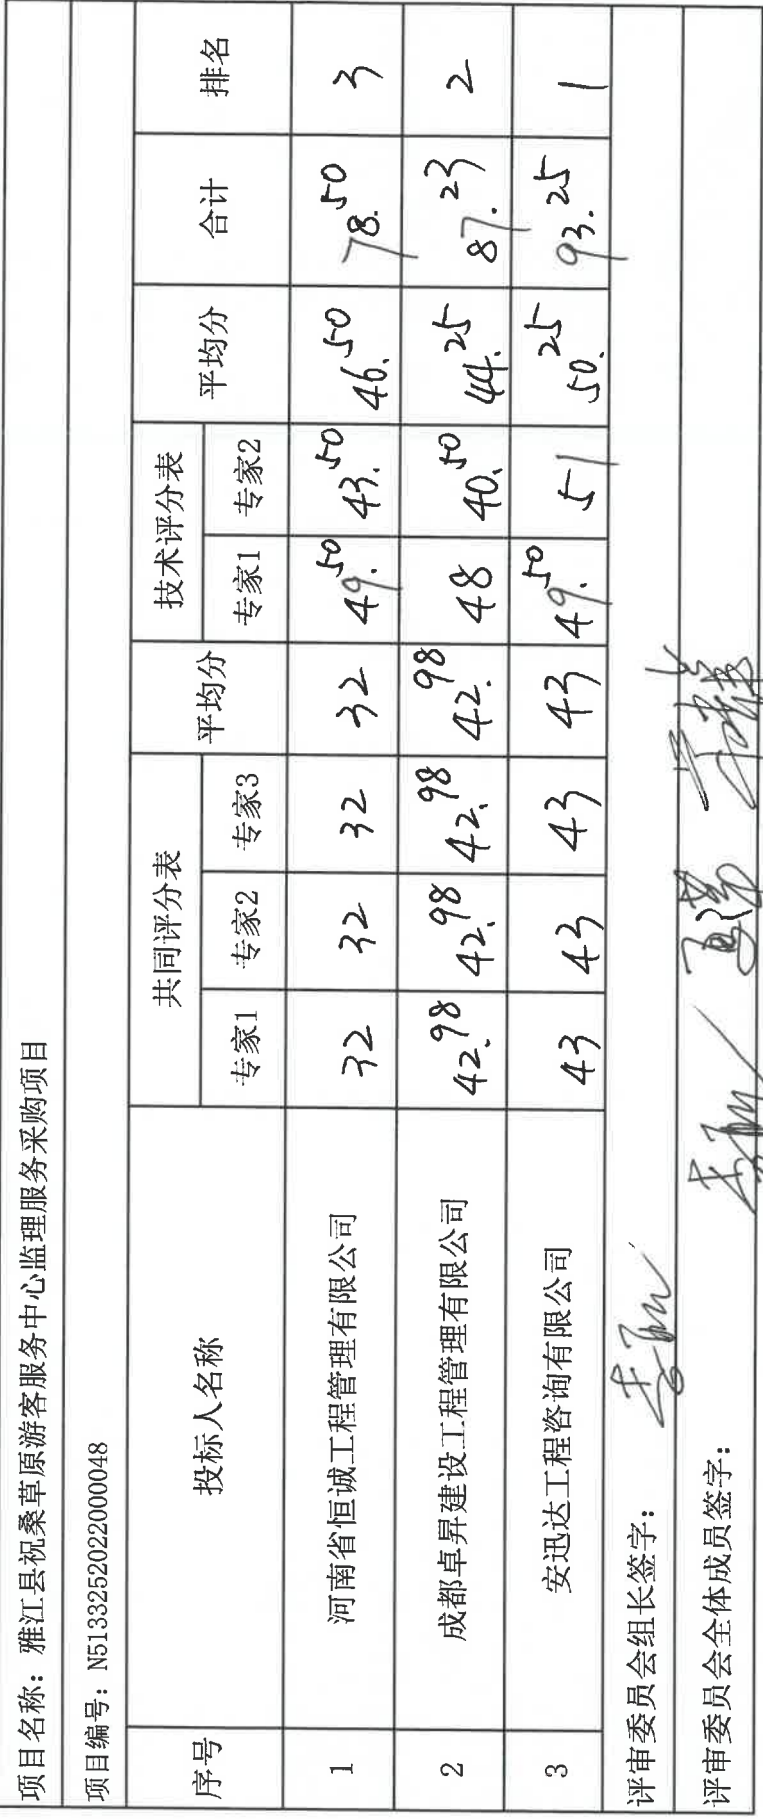 项目名称：雅江县祝桑草原游客服务中心监理服务采购项目
项目编号：N5133252022000048
序号 投标人名称 共同评分表 平均分 技术评分表 平均分 合计 排名
专家1 专家2 专家3 专家1 专家2
1 河南省恒诚工程管理有限公司 32 32 32 32 49.50 43.50 46.50 78.50 3
2 成都卓昇建设工程管理有限公司 42.98 42.98 42.98 42.98 48 40.50 44.25 87.23 2
3 安迅达工程咨询有限公司 43 43 43 43 49.50 51 50.25 93.25 1
评审委员会组长签字：
评审委员会全体成员签字：